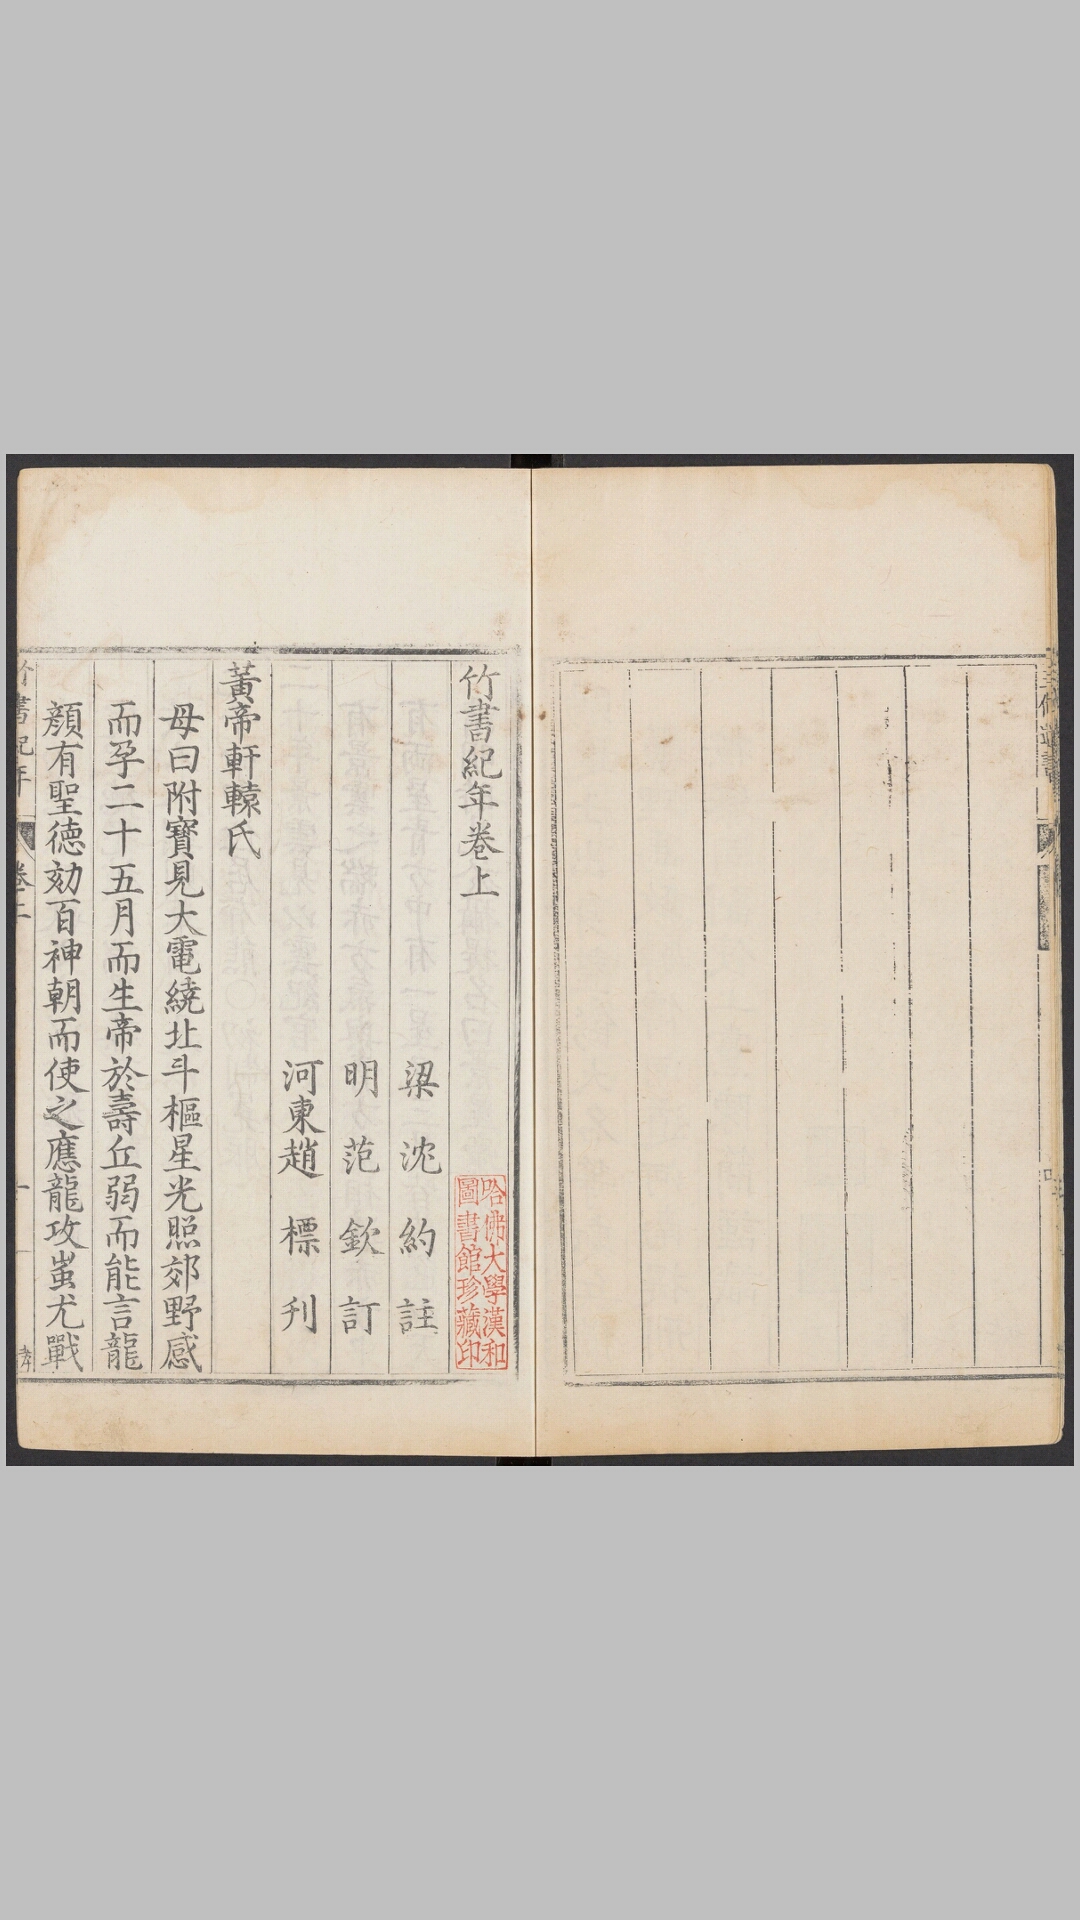 竹書紀年卷上
梁沈約註
明范欽訂
河東趙標刊
黃帝軒轅氏
母曰附寶見大電繞北斗樞星光照郊野感
而孕二十五月而生帝於壽丘弱而能言龍
顏有聖德効百神朝而使之應龍攻蚩尤戰
哈佛大學漢和
圖書館珍藏印